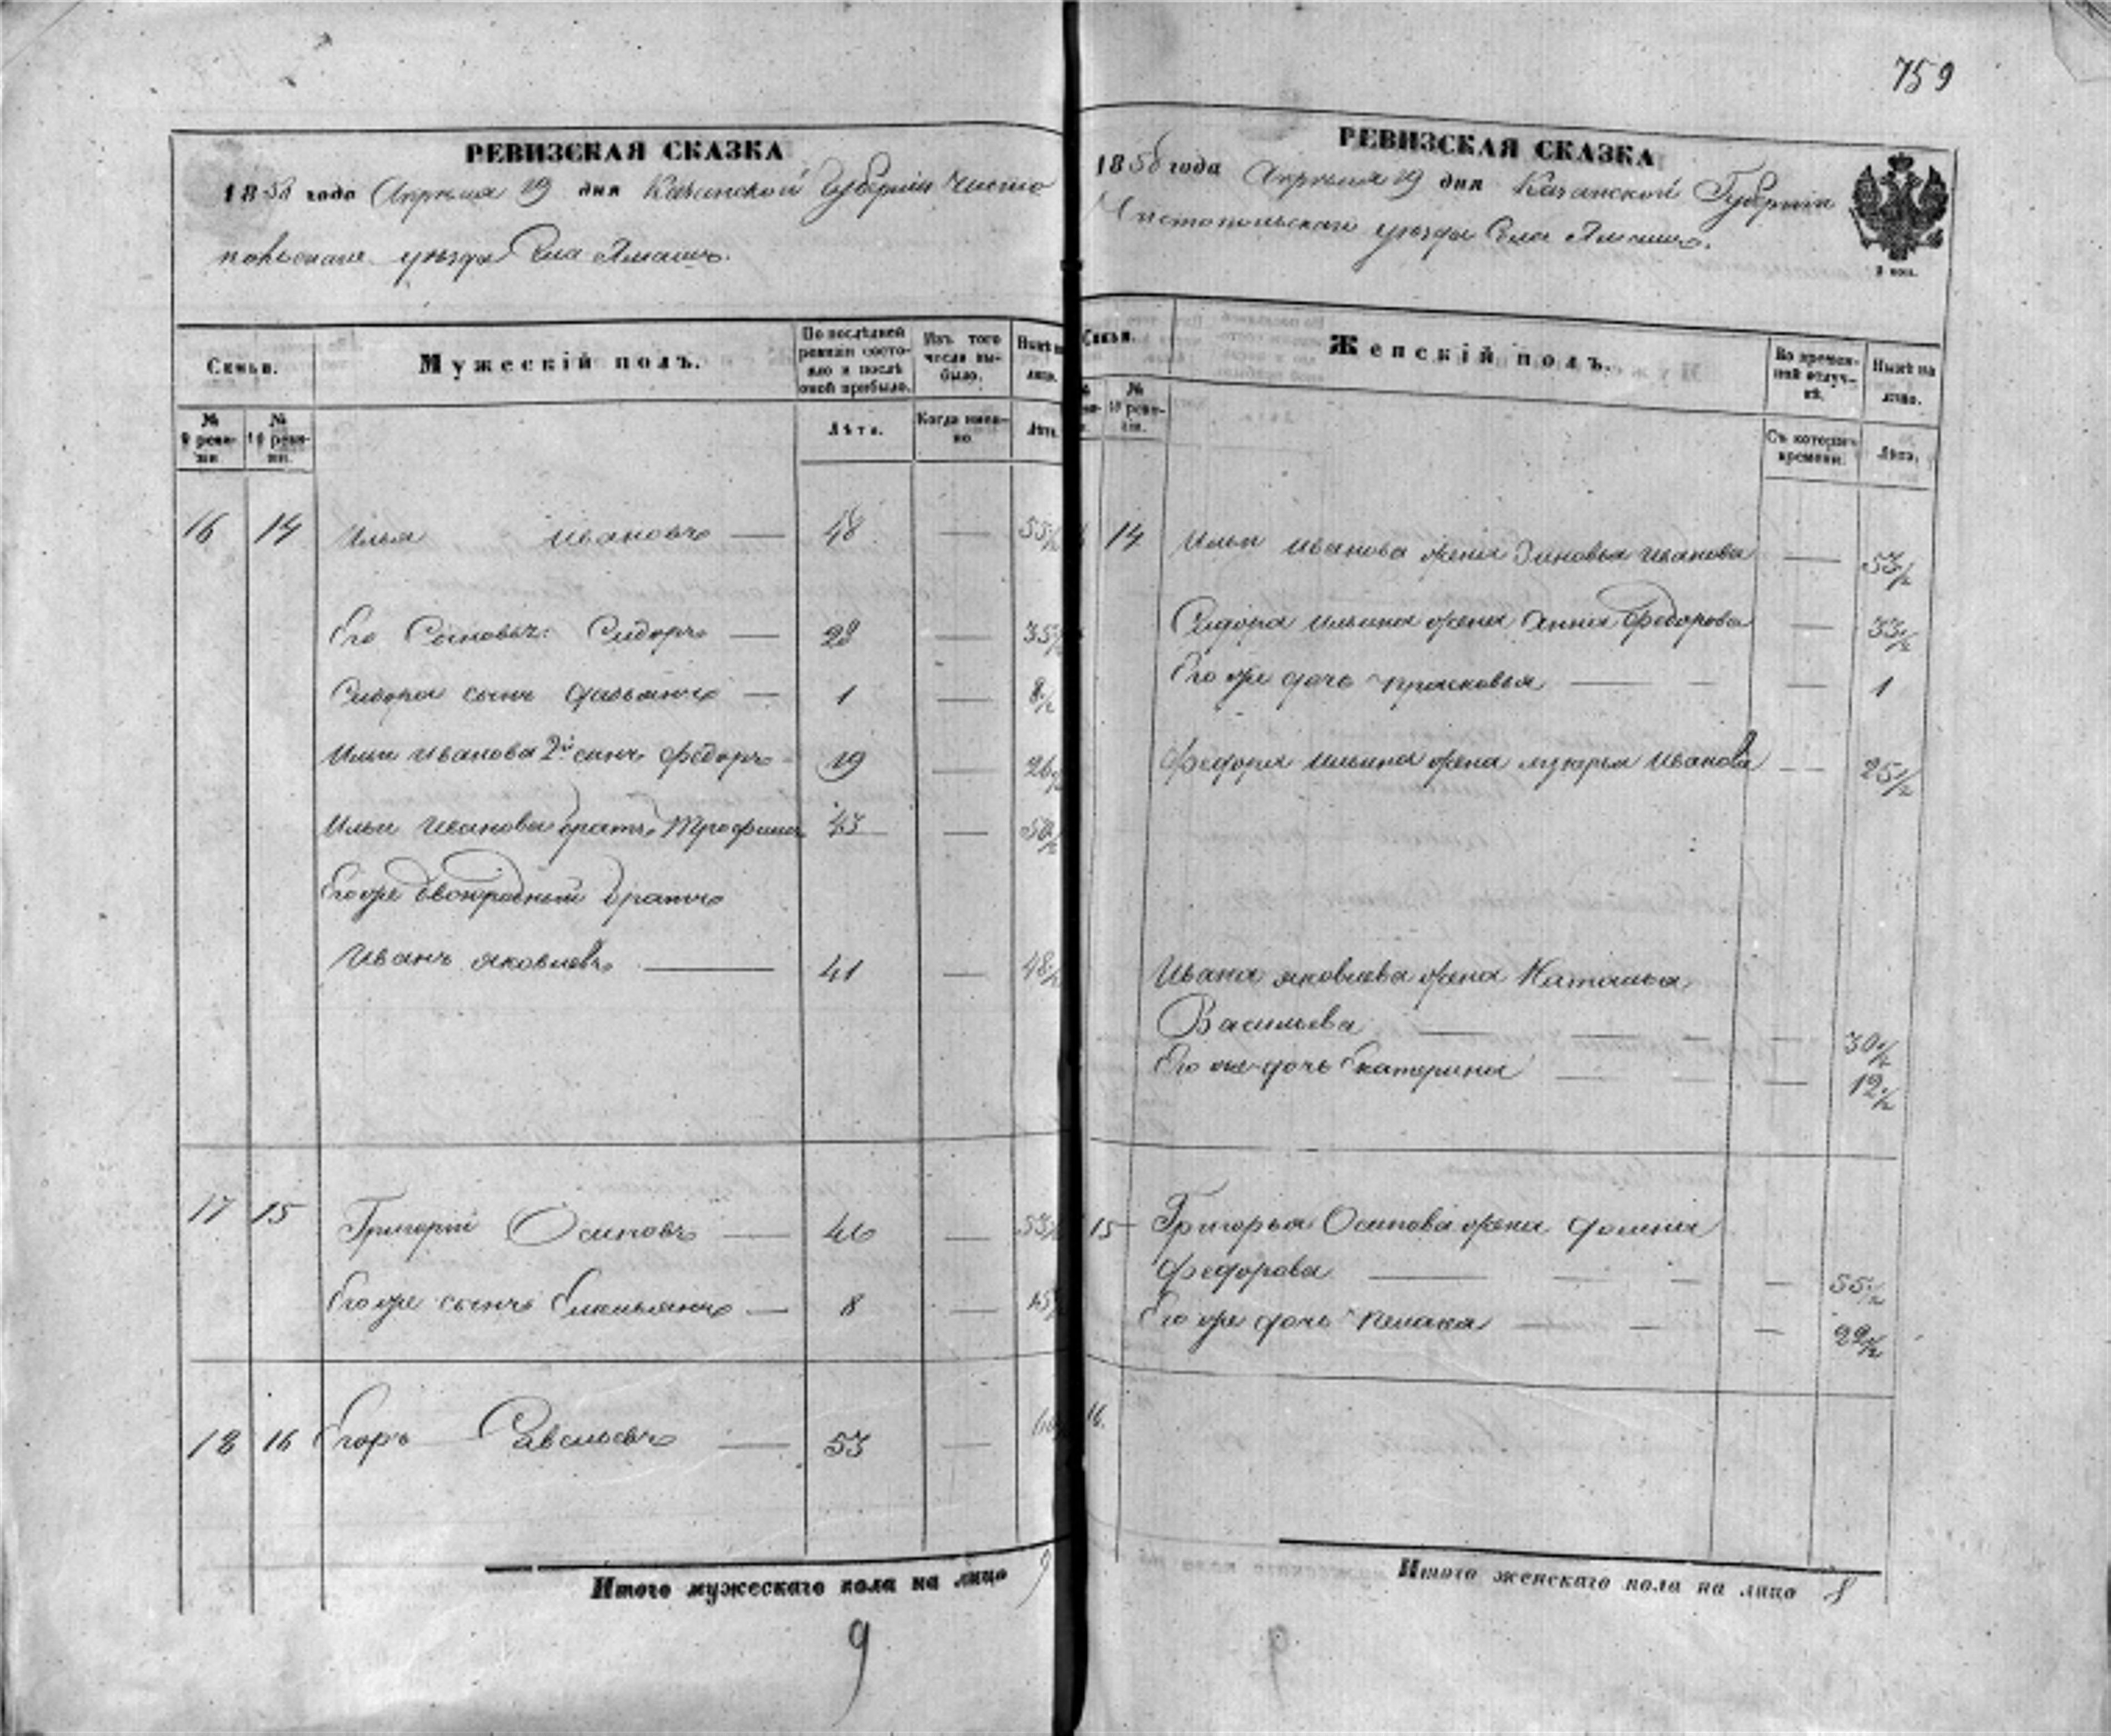 759
РЕВИЗСКАЯ СКАЗКА
1858 года Апреля 19 дня Казанской Губернiи Чисто
польскаго уезда Села Ямашъ.
Семьи.
Мужескiй полъ.
По послѣдней ревизiи состояло и послѣ оной прибыло.
Изъ того числа выбыло.
Нынѣ на лицо.
№ 9 ревизiи
№ 10 ревизiи.
Лѣта.
Когда именно
Лѣта.
16 14 Илья Ивановъ — 48 — 55½
Его Сыновья: Сидоръ — 28 — 35½
Сидора сынъ — 1 — 8½
Ильи Иванова 2й сынъ Федоръ 19 — 26½
Ильи Иванова братъ Трофимъ 43 — 50½
Его же двоюродный братъ
Иванъ Яковлевъ — 41 — 48½
17 15 Григорiй Осиповъ — 46 — 53½
Его же сынъ Емельянъ — 8 — 15½
18 16 Егоръ Савельевъ — 53 — 60
Итого мужескаго пола на лицо 9
9
РЕВИЗСКАЯ СКАЗКА
1858 года Апреля 19 дня Казанской Губернiи
Чистопольскаго уезда Села Ямашъ.
2 коп.
Семьи.
Женскiй полъ.
Во временной отлучкѣ.
Нынѣ на лицо.
№ 10 ревизiи.
Съ котораго времени.
Лѣта.
14 Ильи Иванова жена Зиновья Иванова — 53½
Сидора Ильина жена Анна Федорова — 33½
Его же дочь Прасковья — — — 1
Федора Ильина жена Лукерья Иванова — 25½
Ивана Яковлева жена Наталья
Васильева — — — — 30½
Его же дочь Екатерина — — — 12½
15 Григорья Осипова жена
Федорова — — — — 55½
Его же дочь — — — 22½
16.
Итого женскаго пола на лицо 8